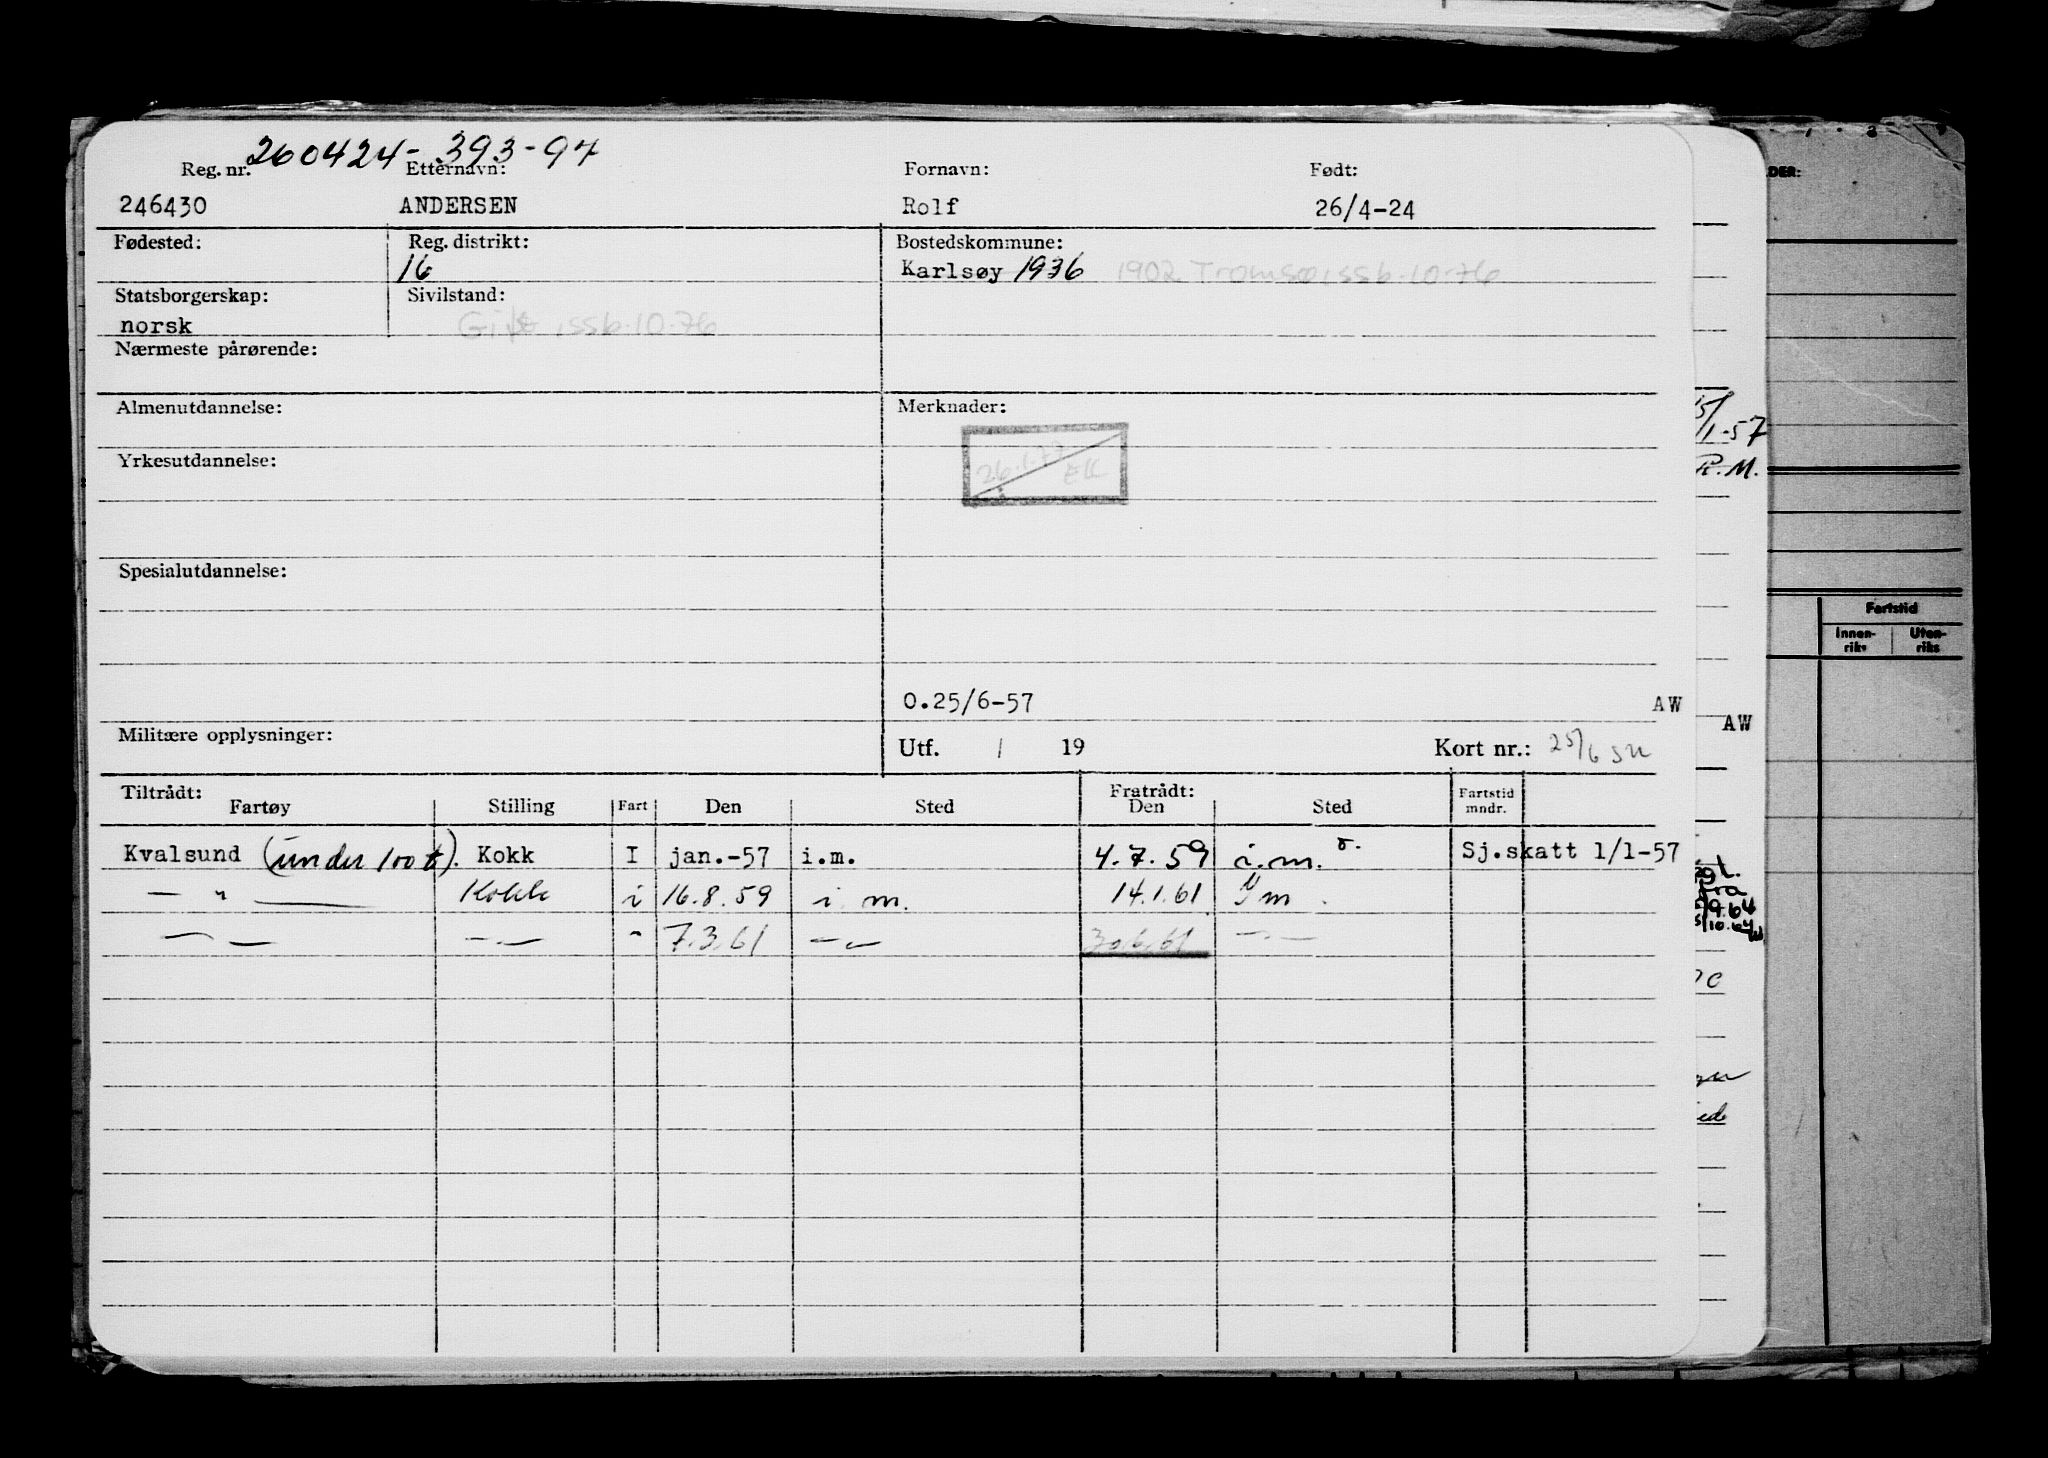 260424-39394
Reg. nr. Etternavn: Fornavn: Født:
246430 ANDERSEN Rolf 26/4-24
Fødested: Reg. distrikt: Bostedskommune:
16 Karlsøy 1936 1902 Tromsø, ssb-10-76
Statsborgerskap: Sivilstand:
norsk Gift, ssb-10-76
Nærmeste pårørende:
Almenutdannelse: Merknader:
Yrkesutdannelse: 26.1.77 EK
Spesialutdannelse:
0.25/6-57 AW
Militære opplysninger: Utf. / 19 Kort nr.: 25/6
Tiltrådt: Fratrådt:
Fartøy Stilling Fart Den Sted Den Sted Fartstid mndr.
Kvalsund (under 100 t). Kokk I jan.-57 i.m. 4.7.59 i.m. Sj.skatt 1/1-57
— " — Kokk i 16.8.59 i m. 14.1.61 m.
— " — — " — " 7.3.61 — " — 30.6.61 — " —
DER:
15/1-57
R.M.
AW
Fartstid
Innen-riks Uten-riks
9.64
10.64